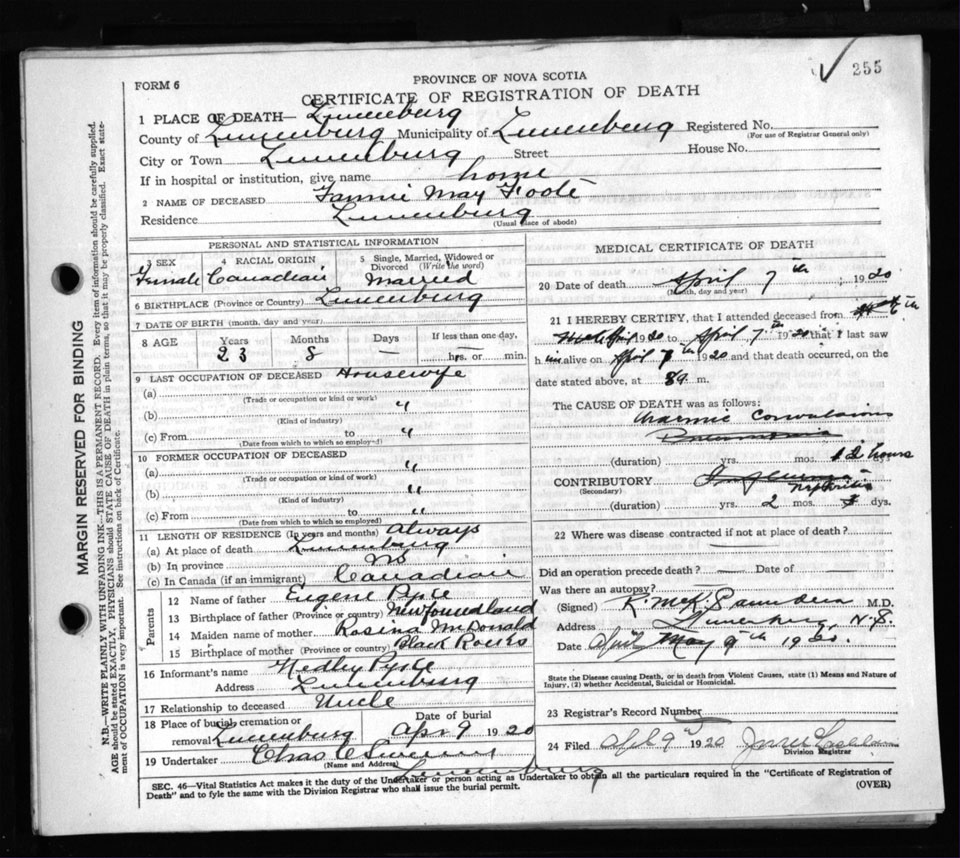 255
FORM 6
PROVINCE OF NOVA SCOTIA
CERTIFICATE OF REGISTRATION OF DEATH
1 PLACE OF DEATH— Lunenburg
County of Lunenburg Municipality of Lunenburg Registered No.
(For use of Registrar General only)
City or Town Lunenburg Street House No.
If in hospital or institution, give name home
2 NAME OF DECEASED Fannie May Foote
Residence Lunenburg
(Usual place of abode)
PERSONAL AND STATISTICAL INFORMATION
3 SEX Female
4 RACIAL ORIGIN Canadian
5 Single, Married, Widowed or Divorced (Write the word) Married
6 BIRTHPLACE (Province or Country) Lunenburg
7 DATE OF BIRTH (month, day and year)
8 AGE Years Months Days If less than one day,
23 8 — — hrs. or min.
9 LAST OCCUPATION OF DECEASED Housewife
(a)
(Trade or occupation or kind or work)
(b) "
(Kind of industry)
(c) From to "
(Date from which to which so employed)
10 FORMER OCCUPATION OF DECEASED
(a) "
(Trade or occupation or kind of work)
(b) "
(Kind of industry)
(c) From to "
(Date from which to which so employed)
11 LENGTH OF RESIDENCE (In years and months) Always
(a) At place of death Lunenburg
(b) In province NS
(c) In Canada (if an immigrant) Canadian
Parents
12 Name of father Eugene
13 Birthplace of father (Province or country) Newfoundland
14 Maiden name of mother Rosina McDonald
15 Birthplace of mother (Province or country) Black Rocks
16 Informant's name Hedley
Address Lunenburg
17 Relationship to deceased Uncle
18 Place of burial, cremation or removal Lunenburg
Date of burial Apr 9 1920
19 Undertaker Chas
(Name and Address) Lunenburg
MEDICAL CERTIFICATE OF DEATH
20 Date of death April 7th, 1920
(Month, day and year)
21 I HEREBY CERTIFY, that I attended deceased from 6th
1920 to April 7th 1920 that I last saw
h alive on April 7th 1920 and that death occurred, on the
date stated above, at 8 a. m.
The CAUSE OF DEATH was as follows:
Uraemic Convulsions
(duration) yrs. mos. 12 hours dys.
CONTRIBUTORY
(Secondary) Nephritis
(duration) yrs. 2 mos. dys.
22 Where was disease contracted if not at place of death? —
Did an operation precede death? — Date of —
Was there an autopsy?
(Signed) R. McK. Saunders M.D.
Address Lunenburg, N.S.
Date May 9th 1920.
State the Disease causing Death, or in death from Violent Causes, state (1) Means and Nature of
Injury, (2) whether Accidental, Suicidal or Homicidal.
23 Registrar's Record Number
24 Filed April 9 1920
Division Registrar
SEC. 46—Vital Statistics Act makes it the duty of the Undertaker or person acting as Undertaker to obtain all the particulars required in the "Certificate of Registration of
Death" and to fyle the same with the Division Registrar who shall issue the burial permit. (OVER)
MARGIN RESERVED FOR BINDING
N.B.—WRITE PLAINLY WITH UNFADING INK—THIS IS A PERMANENT RECORD. Every item of information should be carefully supplied.
AGE should be stated EXACTLY. PHYSICIANS should STATE CAUSE OF DEATH in plain terms, so that it may be properly classified. Exact state-
ment of OCCUPATION is very important. See instructions on back of Certificate.